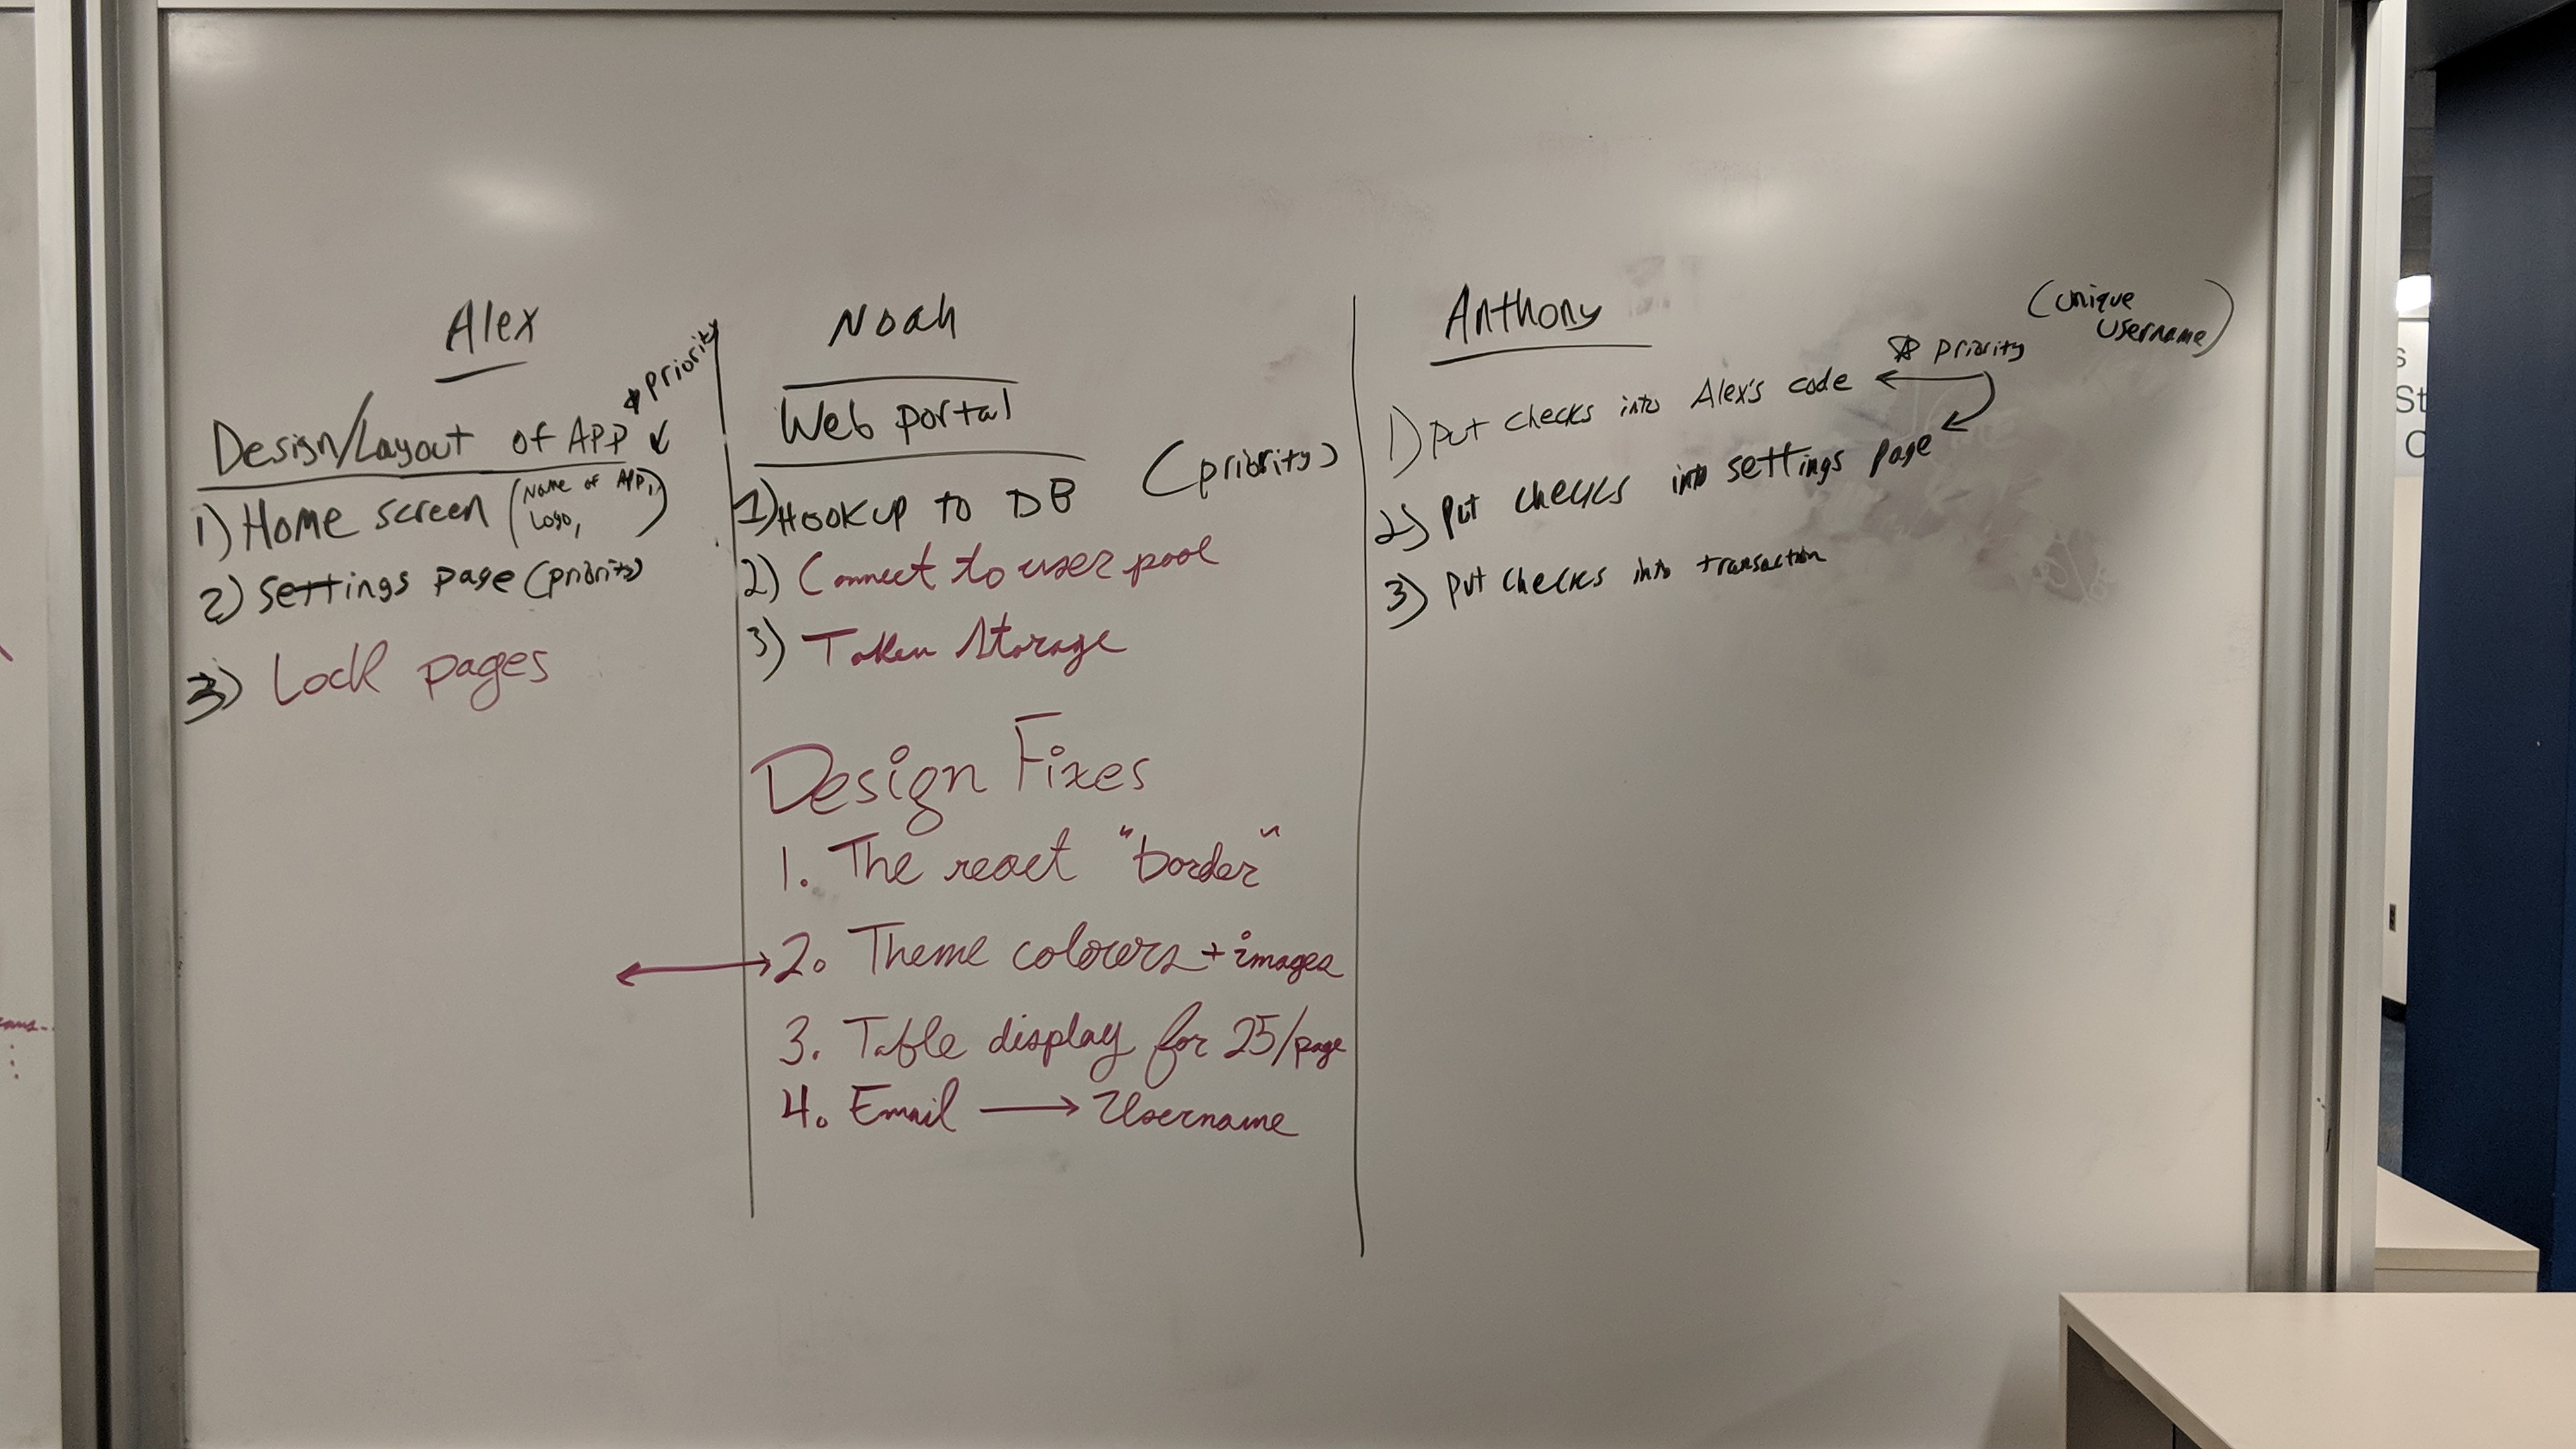 Alex
* priority
Design/Layout of App
1) Home screen (Name of App,
Logo, )
2) Settings page (priority)
3) Lock pages
Noah
Web portal
(priority)
1) Hookup to DB
2) Connect to user pool
3) Token Storage
Design Fixes
1. The react "border"
2. Theme colours + images
3. Table display for 25/page
4. Email → Username
Anthony
(unique
username)
* priority
1) Put checks into Alex's code
2) Put checks into settings page
3) Put checks into transaction
s
St
C